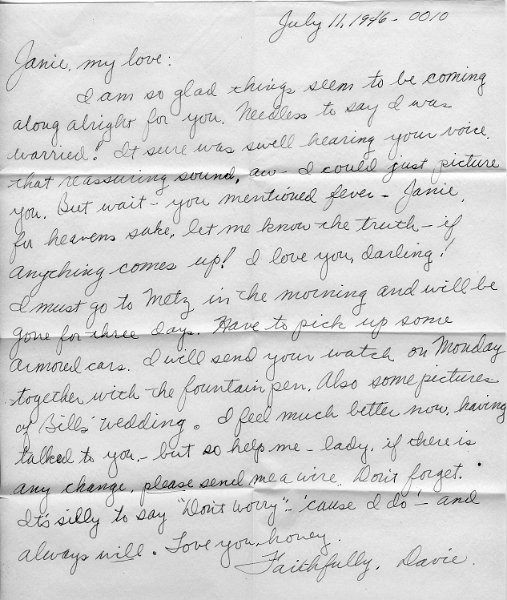 July 11, 1946 - 0010
Janie, my love:
I am so glad things seem to be coming
along alright for you. Needless to say I was
worried! It sure was swell hearing your voice,
that reassuring sound, aw - I could just picture
you. But wait - you mentioned fever - Janie,
for heavens sake, let me know the truth - if
anything comes up! I love you, darling!
I must go to Metz in the morning and will be
gone for three days. Have to pick up some
armored cars. I will send your watch on Monday
together with the fountain pen. Also some pictures
of Bill's wedding. I feel much better now, having
talked to you - but so help me - lady, if there is
any change, please send me a wire. Don't forget.
It's silly to say "Don't worry" - 'cause I do - and
always will. Love you, honey.
Faithfully, Davie.